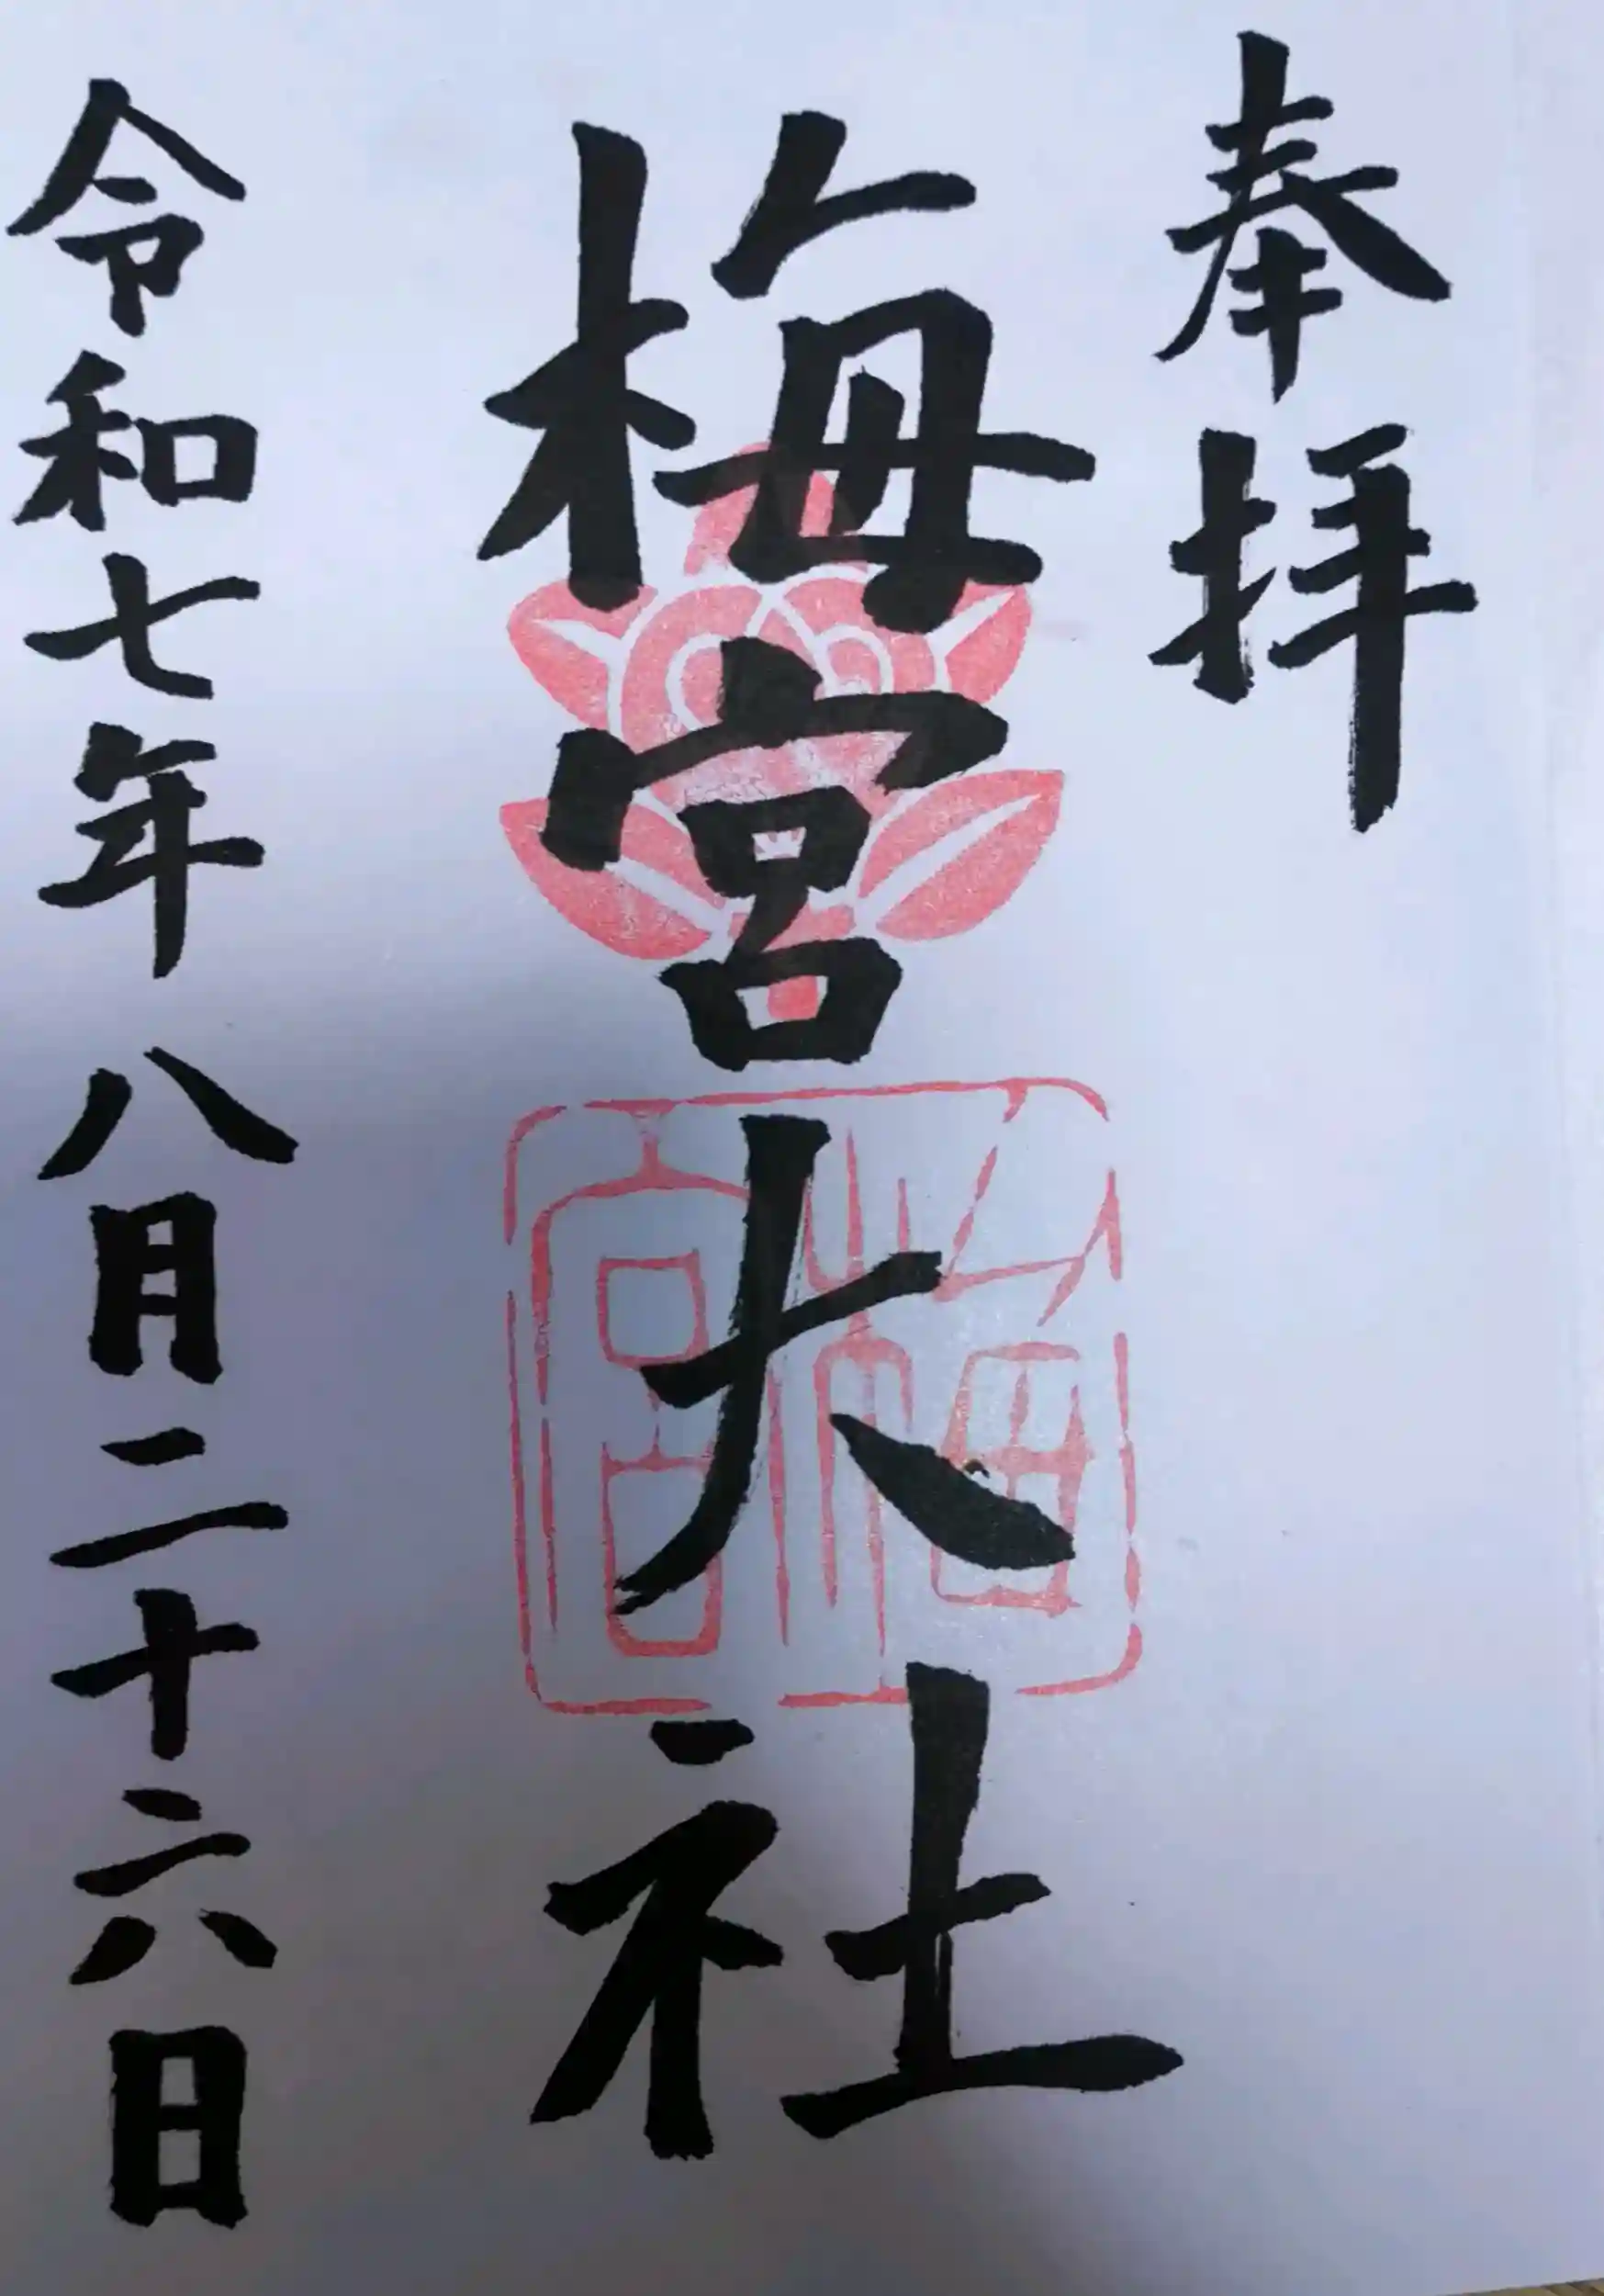 奉拝
梅宮大社
梅宮
令和七年八月二十六日